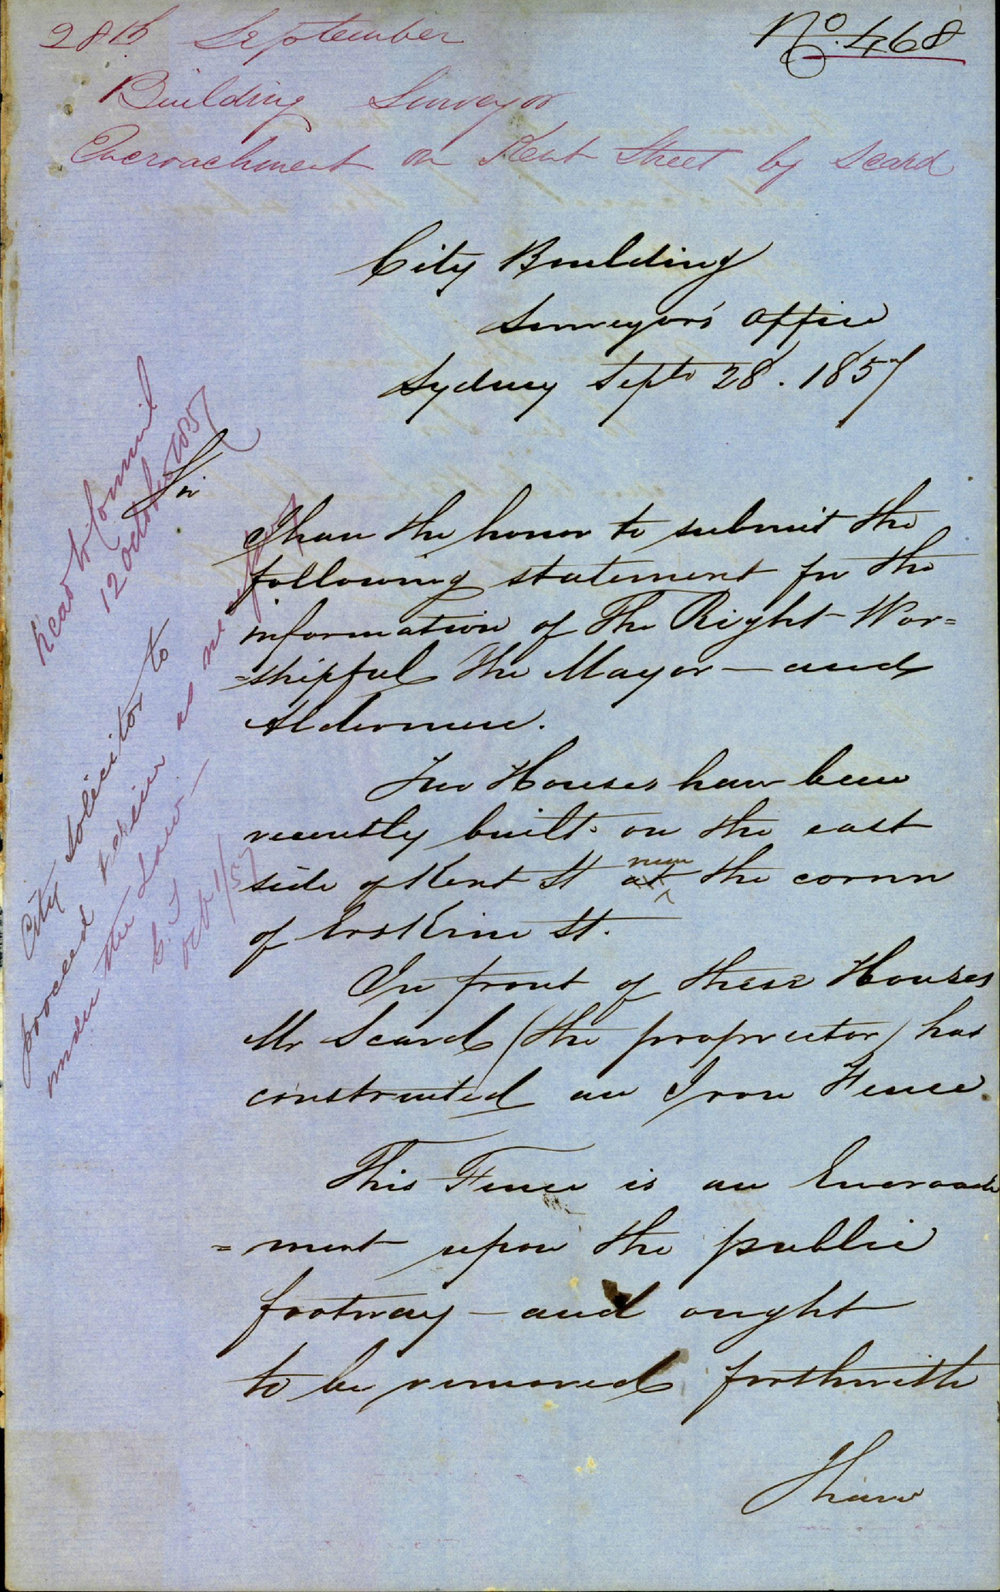 28th September
No. 468
Building Surveyor
Encroachment on Kent Street by Scard
City Building
Surveyor's Office
Sydney Septr 28. 1857
Sir
I have the honor to submit the
following statement for the
information of The Right Wor=
=shipful The Mayor — and
Aldermen.
Two Houses have been
recently built on the east
side of Kent St near the corner
of Erskine St.
In front of these Houses
Mr Scard (the proprietor) has
constructed an Iron Fence.
This Fence is an Encroach
=ment upon the public
footway — and ought
to be removed forthwith
I have
Read to Council
12 October 1857
City Solicitor to
proceed as necessary
under the Law —
Oct 1/57